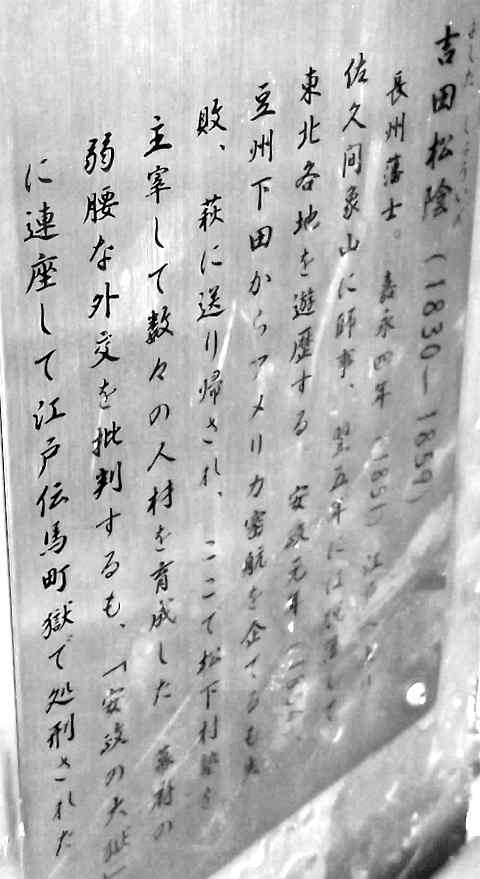 よしだ しょういん
吉田松陰 (1830―1859)
長州藩士。 嘉永四年 (1851) 江
佐久間象山に師事、 翌五年には脱藩して
東北各地を遊歴する 安政元年
豆州下田からアメリカ密航を企てるも失
敗、 萩に送り帰され、 ここで松下村塾を
主宰して数々の人材を育成した 幕府の
弱腰な外交を批判するも、「安政の大獄」
に連座して江戸伝馬町獄で処刑された